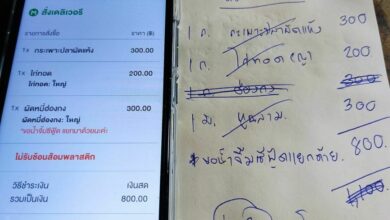 สั่งเดลิเวอรี
รายการสั่งซื้อ ราคา (฿)
1x กระเพาะปลาผัดแห้ง 300.00
1x ไก่ทอด 200.00
ไก่ทอด: ใหญ่
1x ผัดหมี่ฮ่องกง 300.00
ผัดหมี่ฮ่องกง: ใหญ่
"ขอน้ำจิ้มซีฟู๊ด แยกมาด้วยนะค่ะ"
ไม่รับช้อนส้อมพลาสติก
วิธีชำระเงิน เงินสด
รวมเป็นเงิน 800.00
1 ก. กระเพาะปลาผัดแห้ง 300
1 ก. ไก่ทอด 200
300
1 300
* ขอน้ำจิ้มซีฟู๊ดแยกด้วย. 800.
1,100